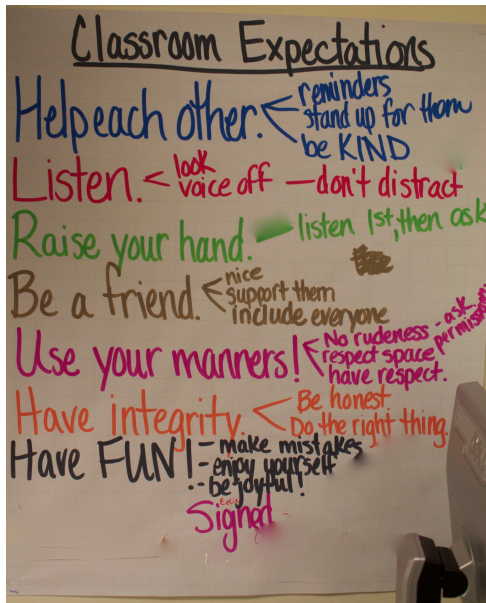 Classroom Expectations
Help each other. < reminders
stand up for them
be KIND
Listen. < look
voice off — don't distract
Raise your hand. — listen 1st, then ask
Be a friend. < nice
support them
include everyone
Use your manners! < No rudeness - ask permission
respect space
have respect.
Have integrity. < Be honest
Do the right thing.
Have FUN! - make mistakes
- enjoy yourself
- be joyful!
Signed